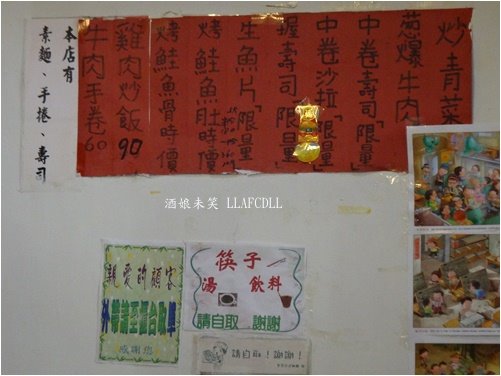 炒青菜
蔥爆牛肉
中卷壽司「限量」
中卷沙拉「限量」
握壽司「限量」
生魚片「限量」
烤鮭魚肚時價
烤鮭魚骨時價
雞肉炒飯90
牛肉手卷60
本店有
素麵、手捲、壽司
酒娘未笑 LLAFCDLL
親愛的顧客
外帶請至櫃台取
感謝您
筷子
湯 飲料
請自取 謝謝
請自取!謝謝!